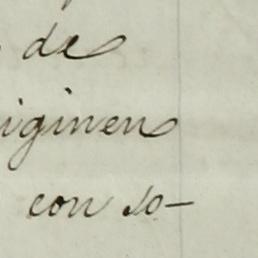 de
iginen
con so-